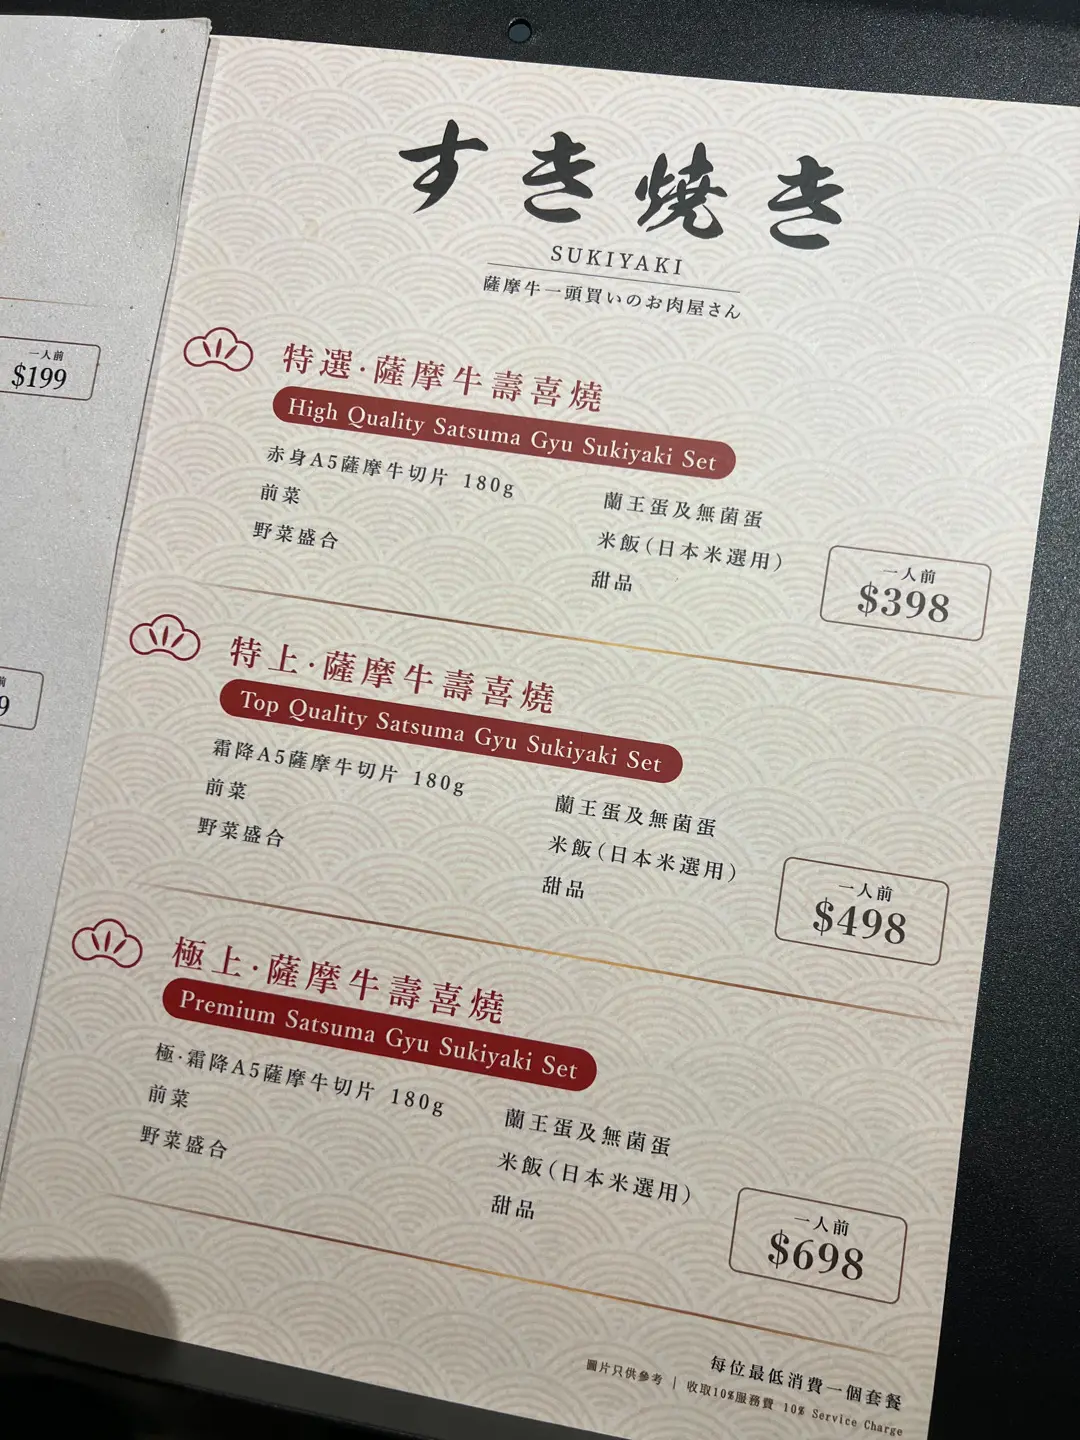 一人前
$199
前
9
すき焼き
SUKIYAKI
薩摩牛一頭買いのお肉屋さん
特選·薩摩牛壽喜燒
High Quality Satsuma Gyu Sukiyaki Set
赤身A5薩摩牛切片 180g
前菜
野菜盛合
蘭王蛋及無菌蛋
米飯(日本米選用)
甜品
一人前
$398
特上·薩摩牛壽喜燒
Top Quality Satsuma Gyu Sukiyaki Set
霜降A5薩摩牛切片 180g
前菜
野菜盛合
蘭王蛋及無菌蛋
米飯(日本米選用)
甜品
一人前
$498
極上·薩摩牛壽喜燒
Premium Satsuma Gyu Sukiyaki Set
極·霜降A5薩摩牛切片 180g
前菜
野菜盛合
蘭王蛋及無菌蛋
米飯(日本米選用)
甜品
一人前
$698
每位最低消費一個套餐
圖片只供參考 | 收取10%服務費 10% Service Charge